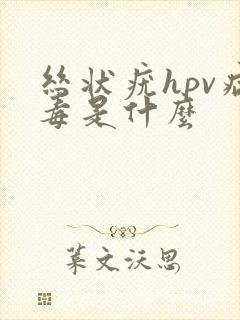 丝状疣hpv病
毒是什麼
叶文沃思